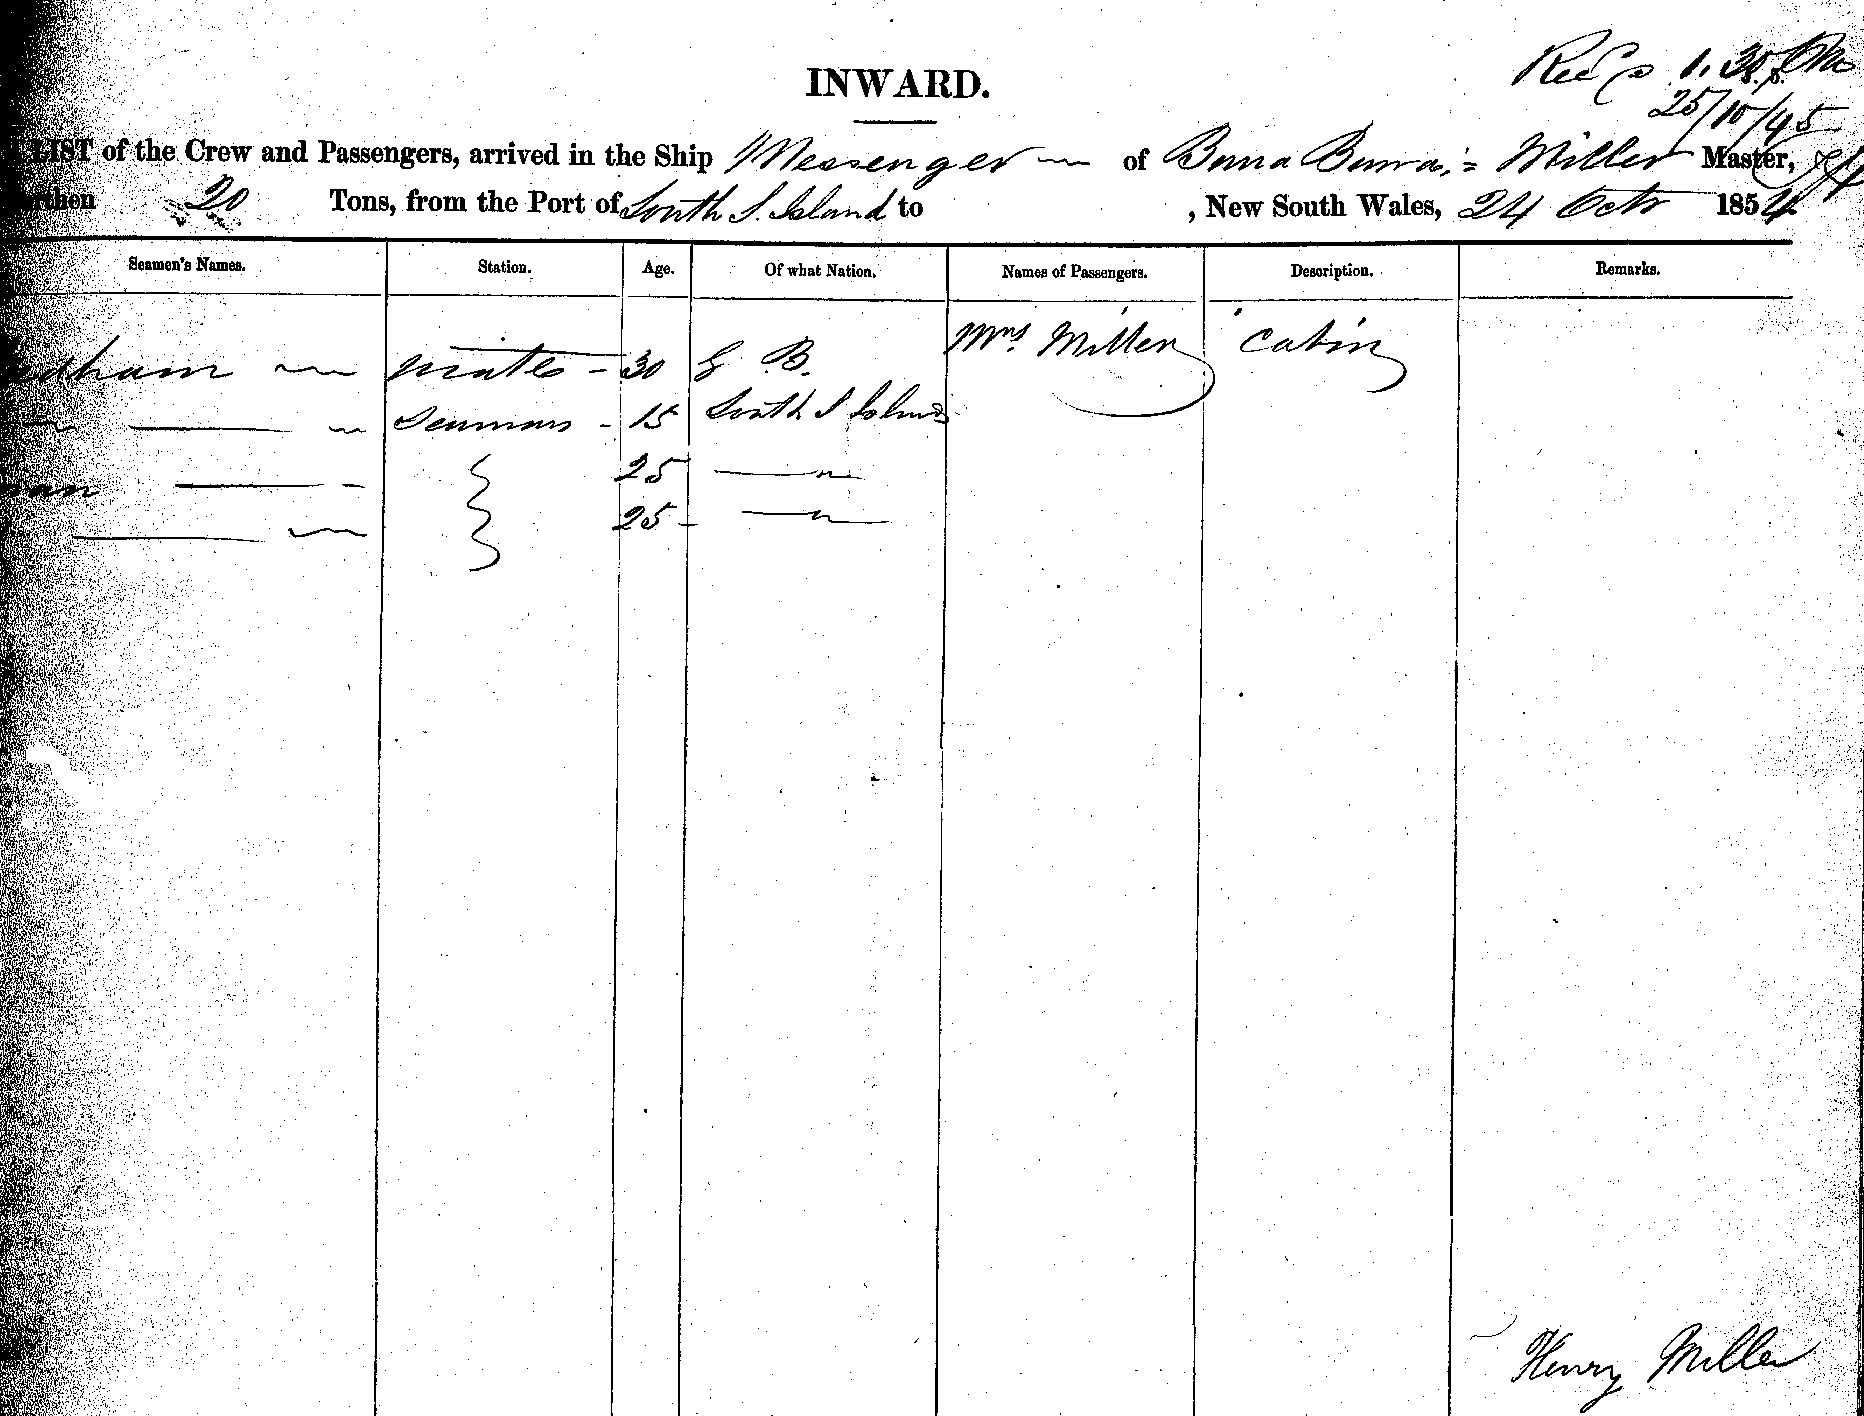 INWARD.
25/10/95
LIST of the Crew and Passengers, arrived in the Ship Messenger of Bura Bura Miller Master,
20 Tons, from the Port of South S. Island to , New South Wales, 24 Oct 185
Seamen's Names. Station. Age. Of what Nation. Names of Passengers. Description. Remarks.
Mrs Miller Cabin
dham mate - 30 G B.
Seaman - 15 South S Island
25
25
Henry Miller